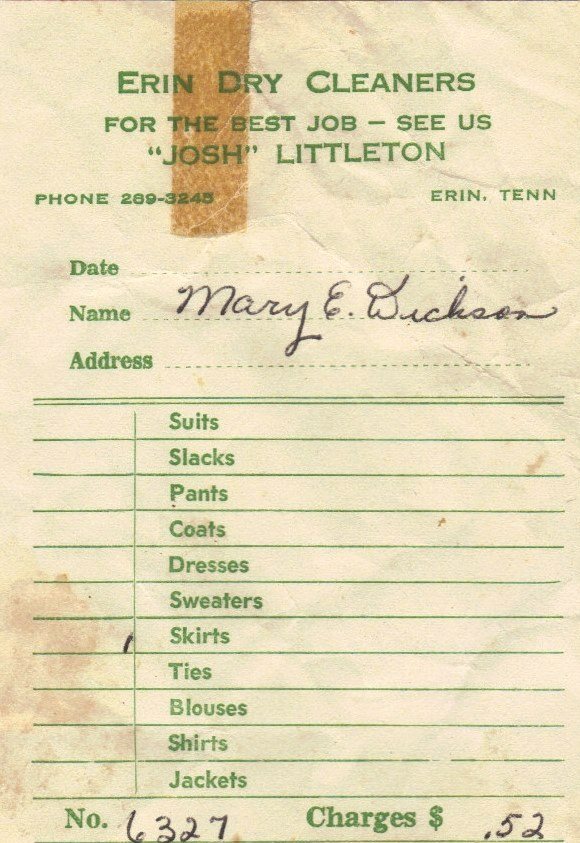 ERIN DRY CLEANERS
FOR THE BEST JOB – SEE US
"JOSH" LITTLETON
PHONE 289-3245 ERIN, TENN
Date
Name Mary E. Dickson
Address
Suits
Slacks
Pants
Coats
Dresses
Sweaters
1 Skirts
Ties
Blouses
Shirts
Jackets
No. 6327 Charges $ .52